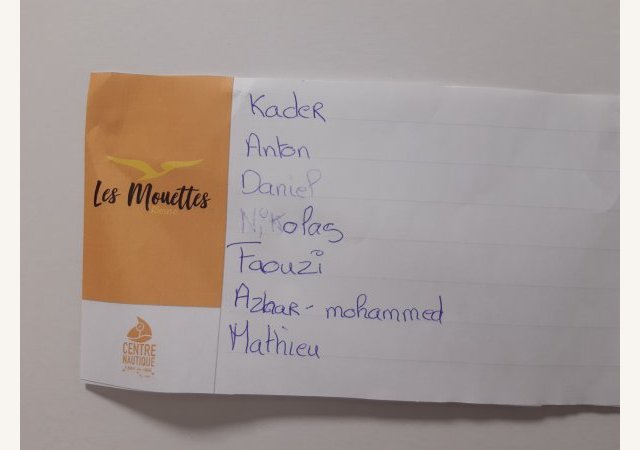 Les Mouettes
CENTRE
NAUTIQUE
Kader
Anton
Daniel
Nikolas
Faouzi
Azhar - mohammed
Mathieu